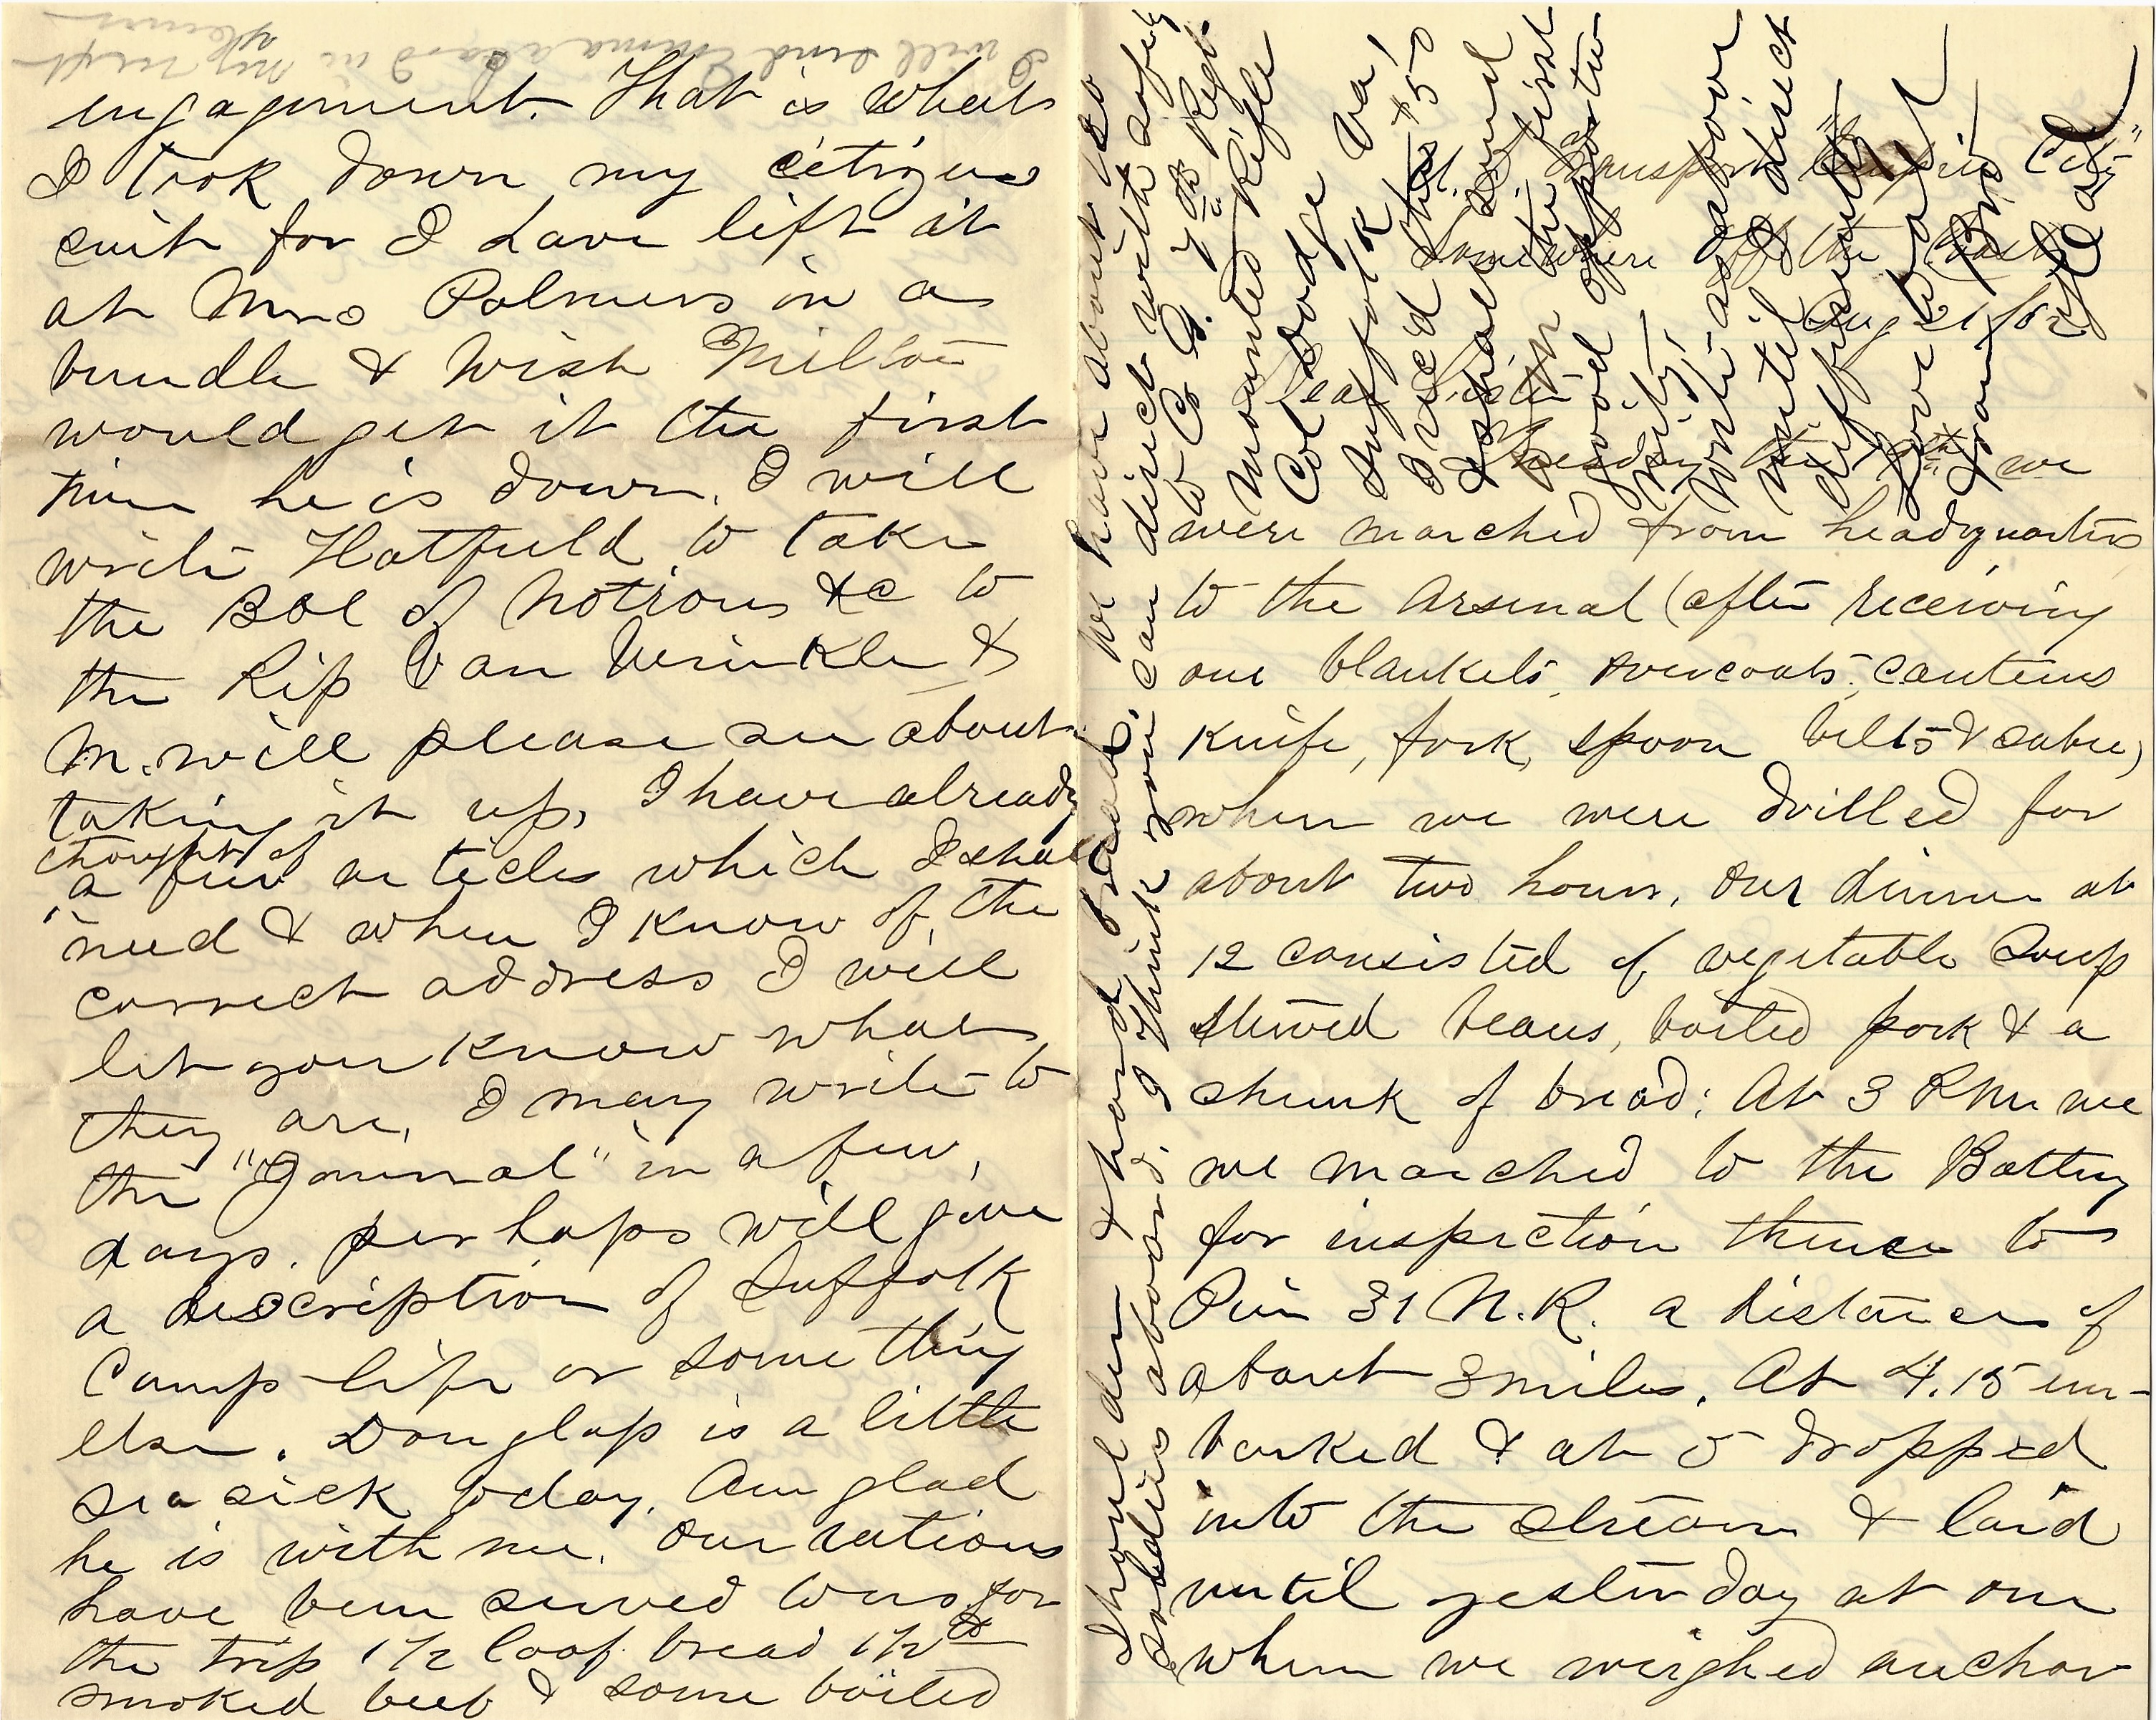 U.S. Transport "Empire City"
Somewhere off the Coast
Aug 21/62
Dear Sister
Tuesday the 19th we
were marched from headquarters
to the Arsenal (after receiving
our blankets, overcoats, canteens
knife, fork, spoon belts & sabre)
when we were drilled for
about two hours. Our dinner at
12 consisted of vegetable Soup
stewed beans, boiled pork & a
chunk of bread; At 3 P.M. we
we marched to the Battery
for inspection thence to
Pier 31 N.R. a distance of
about 3 miles. At 4.15 em-
barked & at 5 dropped
into the stream & laid
until yesterday at one
when we weighed anchor
engagement. That is what
I took down my citizens
suit for I have left it
at Mrs Palmers in a
bundle & wish Milton
would get it the first
time he is down. I will
write Hatfield to take
the Bbl of Notions &c to
the Rip Van Winkle &
M. will please see about
taking it up. I have already
thought of
a few articles which I shall
need & when I know of the
correct address I will
let you know what
they are. I may write to
the "Journal" in a few
days. perhaps will give
a description of Suffolk
Camp-life or something
else. Douglass is a little
sea sick today. Am glad
he is with me. Our rations
have been served to us for
the trip 1 1/2 loaf bread 1 1/2 lb
smoked beef & some boiled
& hard bread, we have about 150
soldiers aboard. I think you can direct with safety
to Co G. 7th Regt.
Mounted Rifle
Col Dodge
Suffolk Va!
I rec'd the $50
& shall send
it up the first
good opportu-
nity,
Write as above
until I direct
differently
Love to all
I will send Emma a card in my next